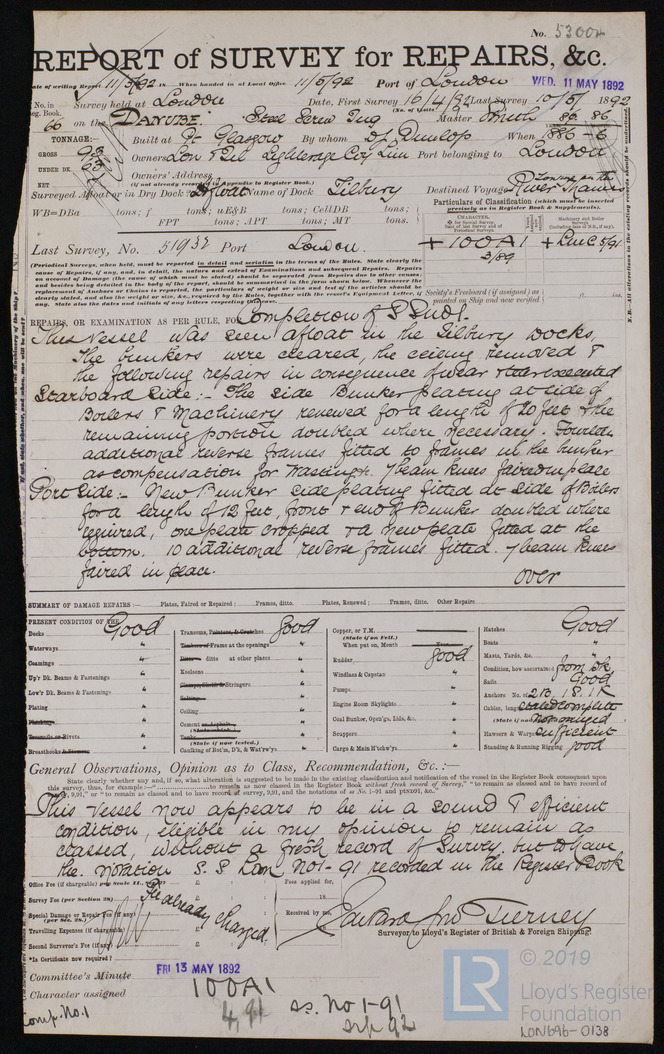 No. 53004
REPORT of SURVEY for REPAIRS, &c.
Date of writing Report 11/5/92 18 When handed in at Local Office 11/5/92 Port of London WED. 11 MAY 1892
No. in Reg. Book. Survey held at London Date, First Survey 16/4/92 Last Survey 10/5/ 1892
66 on the DANUBE Steel Screw Tug (No. of Visits) Master Smith 86.86
TONNAGE:— Built at Pt Glasgow By whom D. J. Dunlop When 1886-6
GROSS 93
UNDER DK. 53 Owners Lon & Til Lighterage Coy Lim Port belonging to London
NET Owners' Address
(if not already recorded in Appendix to Register Book.)
Surveyed Afloat or in Dry Dock Afloat Name of Dock Tilbury Destined Voyage Towing on the River Thames
WB=DBa tons; f tons; uE&B tons; CellDB tons;
FPT tons; APT tons; MT tons.
Particulars of Classification (which must be inserted precisely as in Register Book & Supplements).
Last Survey, No. 51932 Port London.
+100A1 + LMC 5/91
3/89
(Periodical Surveys, when held, must be reported in detail and seriatim in the terms of the Rules. State clearly the cause of Repairs, if any, and, in detail, the nature and extent of Examinations and subsequent Repairs. Repairs on account of Damage (the cause of which must be stated) should be separated from Repairs due to other causes and besides being detailed in the body of the report, should be summarised in the form shown below. Whenever the replacement of Anchors or Chains is reported, the particulars of weight or size and test of the articles should be clearly stated, and also the weight or size, &c., required by the Rules, together with the vessel's Equipment Letter, if any. State also the dates and initials of any letters respecting
Society's Freeboard (if assigned) as painted on Ship and now verified
REPAIRS, OR EXAMINATION AS PER RULE, FOR Completion of S.S. No 1.
This Vessel was seen afloat in the Tilbury Docks.
The bunkers were cleared, the ceiling removed &
the following repairs in consequence of wear & tear executed
Starboard Side:- The side Bunker plating at side of
Boilers & Machinery renewed for a length of 20 feet & the
remaining portion doubled where necessary. Fourteen
additional reverse frames fitted to frames in the bunker
as compensation for wasting. 7 beam knees faired in place
Port Side:- New Bunker side plating fitted at side of Boilers
for a length of 12 feet, front & end of Bunker doubled where
required, one plate cropped & a new plate fitted at the
bottom. 10 additional reverse frames fitted. 7 beam knees
faired in place.
over
SUMMARY OF DAMAGE REPAIRS:— Plates, Faired or Repaired; Frames, ditto. Plates, Renewed; Frames, ditto. Other Repairs
PRESENT CONDITION OF THE
Decks Good
Waterways "
Coamings "
Up'r Dk. Beams & Fastenings "
Low'r Dk. Beams & Fastenings "
Plating "
Planking
Treenails or Rivets "
Breasthooks & Stemson "
Transoms, Pointers, & Crutches good
Timbers or Frame at the openings "
Ditto ditto at other places "
Keelsons "
Clamps, Shelfs & Stringers "
Salting
Ceiling "
Cement or Asphalt "
(State which.)
Tanks
(State if now tested.)
Caulking of Bot'm, Dk, & Wat'rw'ys "
Copper, or Y.M.
(State if on Felt.)
When put on, Month Year
Rudder good
Windlass & Capstan "
Pumps "
Engine Room Skylights "
Coal Bunker, Open'gs, Lids, &c. "
Scuppers "
Cargo & Main H'tchw'ys "
Hatches Good
Boats "
Masts, Yards, &c. "
Condition, how ascertained from Dk
Sails Good
Anchors No. of 2B. 1S. 1K
Cables, length stated complete
(State if now not ranged
Hawsers & Warps sufficient
Standing & Running Rigging good
General Observations, Opinion as to Class, Recommendation, &c.:—
State clearly whether any and, if so, what alteration is suggested to be made in the existing classification and notification of the vessel in the Register Book consequent upon this survey, thus, for example:—" to remain as now classed in the Register Book without fresh record of Survey," "to remain as classed and to have record of survey, 9,91," or "to remain as classed and to have record of survey, 9,91, and the notations of ss No. 1-91 and ptnx91, &c."
This Vessel now appears to be in a sound & efficient
condition, eligible in my opinion to remain as
classed, without a fresh record of Survey, but to have
the notation S.S Lon No1-91 recorded in the Register Book
Office Fee (if chargeable) per Scale II., £ : :
Survey Fee (per Section 28) £ : :
Special Damage or Repair Fee (if any) (per Sec. 28.) £ : :
Travelling Expenses (if chargeable) £ : :
Second Surveyor's Fee (if any) £ : :
*Is Certificate now required?
Fee already charged.
Fees applied for, 18
Received by me,
Edward Jno Tierney
Surveyor to Lloyd's Register of British & Foreign Shipping.
Committee's Minute FRI 13 MAY 1892
Character assigned 100A1
4,91 ss. No 1-91
comp. No. 1
© 2019
LR
Lloyd's Register
Foundation
LON696-0138